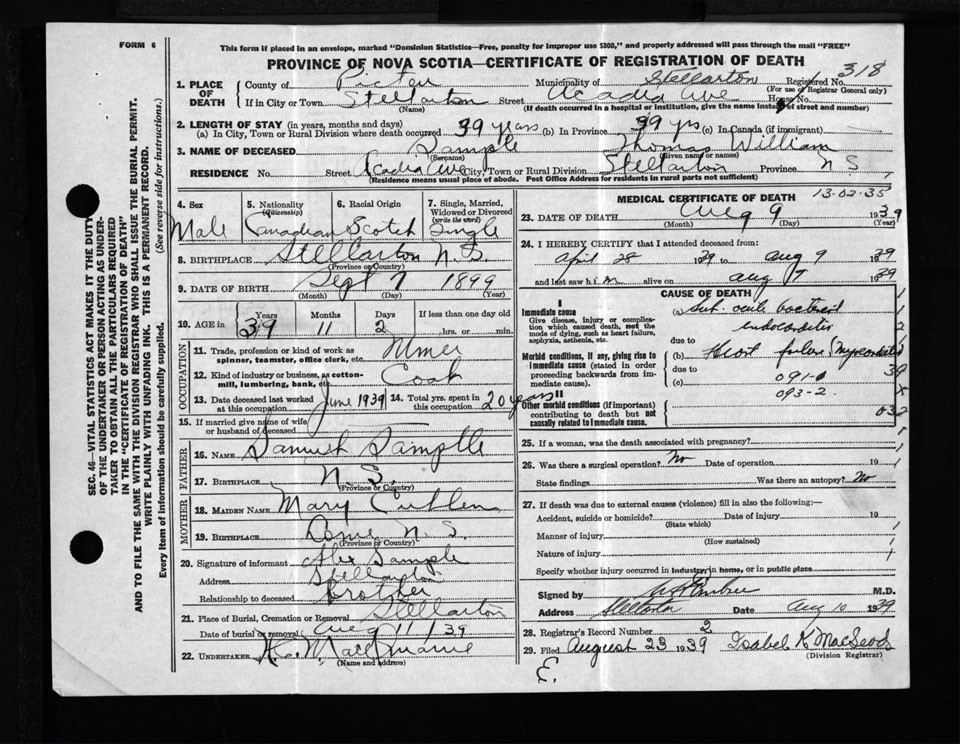 FORM 6
This form if placed in an envelope, marked "Dominion Statistics—Free, penalty for improper use $300," and properly addressed will pass through the mail "FREE"
PROVINCE OF NOVA SCOTIA—CERTIFICATE OF REGISTRATION OF DEATH
SEC. 46—VITAL STATISTICS ACT MAKES IT THE DUTY
OF THE UNDERTAKER OR PERSON ACTING AS UNDER-
TAKER TO OBTAIN ALL THE PARTICULARS REQUIRED
IN THE "CERTIFICATE OF REGISTRATION OF DEATH"
AND TO FILE THE SAME WITH THE DIVISION REGISTRAR WHO SHALL ISSUE THE BURIAL PERMIT.
WRITE PLAINLY WITH UNFADING INK. THIS IS A PERMANENT RECORD.
Every item of information should be carefully supplied. (See reverse side for instructions.)
1. PLACE OF DEATH County of Pictou Municipality of Stellarton Registered No. 318
(For use of Registrar General only)
If in City or Town Stellarton Street Acadia Ave House No.
(Name) (If death occurred in a hospital or institution, give the name instead of street and number)
2. LENGTH OF STAY (in years, months and days)
(a) In City, Town or Rural Division where death occurred 39 years (b) In Province 39 yrs (c) In Canada (if immigrant)
3. NAME OF DECEASED Sample Thomas William
(Surname) (Given name or names)
RESIDENCE No. Street Acadia Ave City, Town or Rural Division Stellarton Province N S
(Residence means usual place of abode. Post Office Address for residents in rural parts not sufficient)
4. Sex 5. Nationality (Citizenship) 6. Racial Origin 7. Single, Married, Widowed or Divorced (write the word)
Male Canadian Scotch Single
8. BIRTHPLACE Stellarton N.S.
(Province or Country)
9. DATE OF BIRTH Sept 7 1899
(Month) (Day) (Year)
10. AGE in Years Months Days If less than one day
39 11 2 hrs. or min.
OCCUPATION
11. Trade, profession or kind of work as spinner, teamster, office clerk, etc. Miner
12. Kind of industry or business, as cotton-mill, lumbering, bank, etc. Coal
13. Date deceased last worked at this occupation June 1939 14. Total yrs. spent in this occupation 20 years
15. If married give name of wife or husband of deceased
FATHER
16. NAME Samuel Sample
17. BIRTHPLACE N.S.
(Province or Country)
MOTHER
18. MAIDEN NAME Mary
19. BIRTHPLACE N.S.
(Province or Country)
20. Signature of informant Alex Sample
Address Stellarton
Relationship to deceased brother
21. Place of Burial, Cremation or Removal Stellarton
Date of burial or removal Aug 11/39
22. UNDERTAKER
(Name and address)
MEDICAL CERTIFICATE OF DEATH 13-02-35
23. DATE OF DEATH Aug 9 1939
(Month) (Day) (Year)
24. I HEREBY CERTIFY that I attended deceased from:
April 28 1939 to Aug 9 1939
and last saw him alive on Aug 7 1939
CAUSE OF DEATH
I
Immediate cause
Give disease, injury or complication which caused death, not the mode of dying, such as heart failure, asphyxia, asthenia, etc.
(a) Sub. acute bacterial
endocarditis
due to
Morbid conditions, if any, giving rise to immediate cause (stated in order proceeding backwards from immediate cause).
(b) Heart failure (myocarditis)
due to
(c) 091-1
093-2
II
Other morbid conditions (if important) contributing to death but not causally related to immediate cause.
25. If a woman, was the death associated with pregnancy?
26. Was there a surgical operation? No Date of operation 19
State findings Was there an autopsy? No
27. If death was due to external causes (violence) fill in also the following:—
Accident, suicide or homicide? Date of injury 19
(State which)
Manner of injury
(How sustained)
Nature of injury
Specify whether injury occurred in industry, in home, or in public place
Signed by M.D.
Address Stellarton Date Aug 10 1939
28. Registrar's Record Number 2
29. Filed August 23 1939 Isabel K. MacLeod
(Division Registrar)
E.